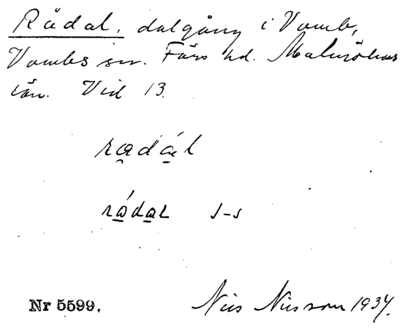 Rådal, dalgång i Vomb,
Vombs sn. Färs hd. Malmöhus
län. Vid 13.
rada̱l
råda̱l s-s
Nr 5599. Nils Nilsson 1937.